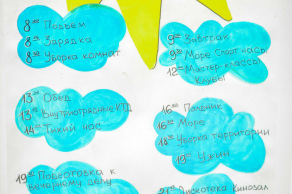 8⁰⁰ Подъем
8¹⁵ Зарядка
8³⁰ Уборка комнат
9⁰⁰ Завтрак
9³⁰ Море Спорт часы
12⁰⁰ Мастер-классы
Клубы
13⁰⁰ Обед
13³⁰ Внутриотрядные КТД
14³⁰ Тихий час
16⁰⁰ Полдник
16³⁰ Море
18⁰⁰ Уборка территории
19⁰⁰ Ужин
19³⁰ Подготовка к
вечернему делу
Дискотека Кинозал